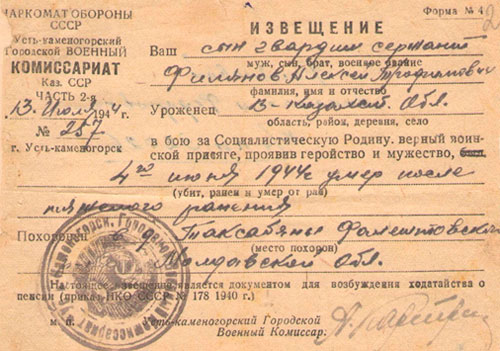 НАРКОМАТ ОБОРОНЫ
СССР
Усть-каменогорский
Городской ВОЕННЫЙ
КОМИССАРИАТ
Каз. ССР
ЧАСТЬ 2-я
13 Июля 1944 г.
№ 257
г. Усть-каменогорск
Форма № 4
2
ИЗВЕЩЕНИЕ
Ваш сын гвардии сержант
муж, сын, брат, военное звание
Алексей Трофимович
фамилия, имя и отчество
Уроженец В-Казахст. Обл.
область, район, деревня, село
в бою за Социалистическую Родину, верный воин-
ской присяге, проявив геройство и мужество, был
4го июня 1944г умер после
(убит, ранен и умер от ран)
тяжелого ранения
Похоронен в д. Таксабяны
(место похорон)
Молдавской Обл.
Настоящее извещение является документом для возбуждения ходатайства о
пенсии (приказ НКО СССР № 178 1940 г.)
м. п. Усть-каменогорский Городской
Военный Комиссар: